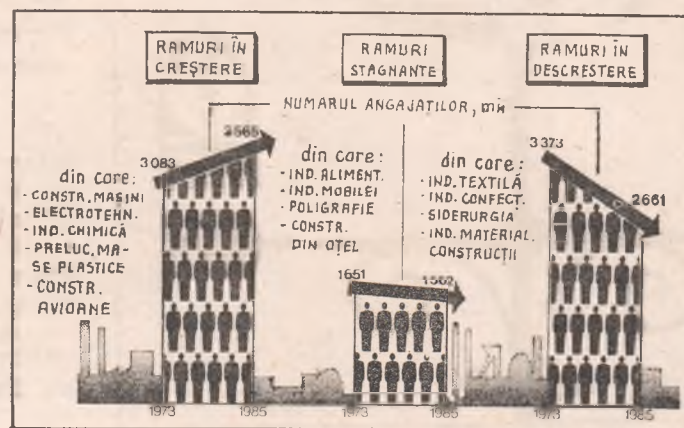 RAMURI ÎN
CREȘTERE
RAMURI
STAGNANTE
RAMURI ÎN
DESCREȘTERE
NUMĂRUL ANGAJAȚILOR, mii
3 083
3565
din care:
- CONSTR. MAȘINI
- ELECTROTEHN.
- IND. CHIMICĂ
- PRELUC. MA-
SE PLASTICE
- CONSTR.
AVIOANE
1973
1985
din care:
- IND. ALIMENT.
- IND. MOBILEI
- POLIGRAFIE
- CONSTR.
DIN OȚEL
1651
1562
1973
1985
din care:
- IND. TEXTILĂ
- IND. CONFECT.
- SIDERURGIA
- IND. MATERIAL.
CONSTRUCTII
3 373
2661
1973
1985